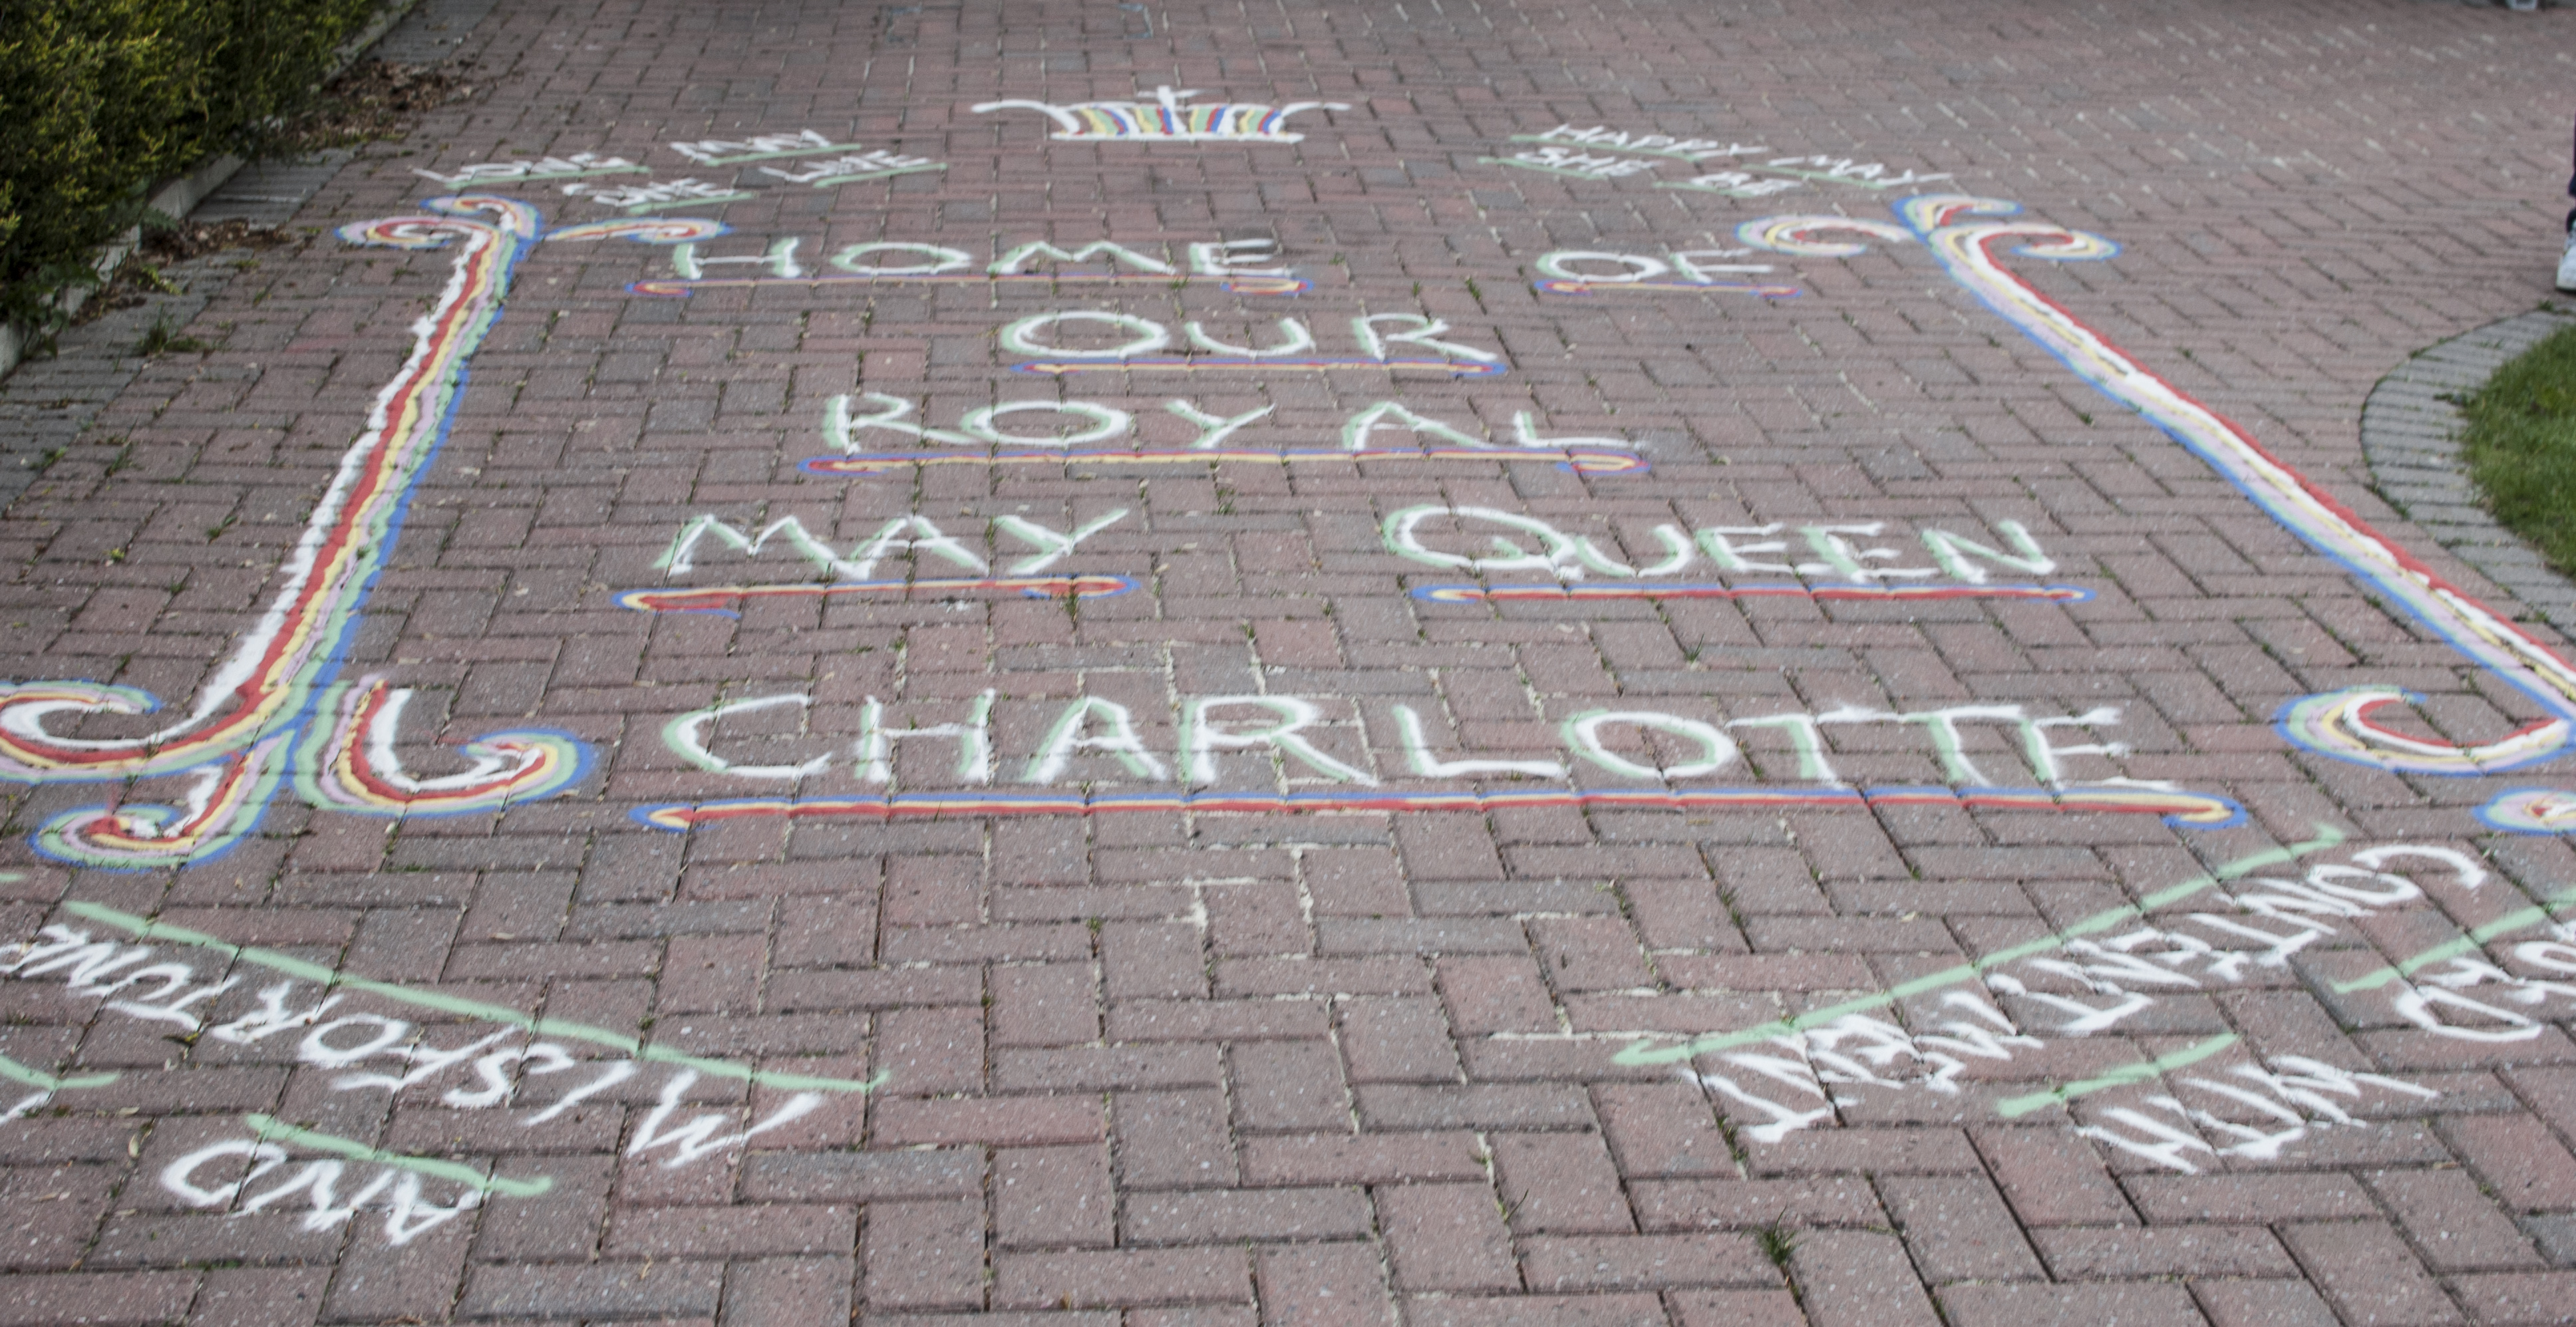 LONG MAY
SHE LIVE
HAPPY MAY
SHE BE
HOME OF
OUR
ROYAL
MAY QUEEN
CHARLOTTE
CONTENTMENT
WITH
MISFORTUNE
AND